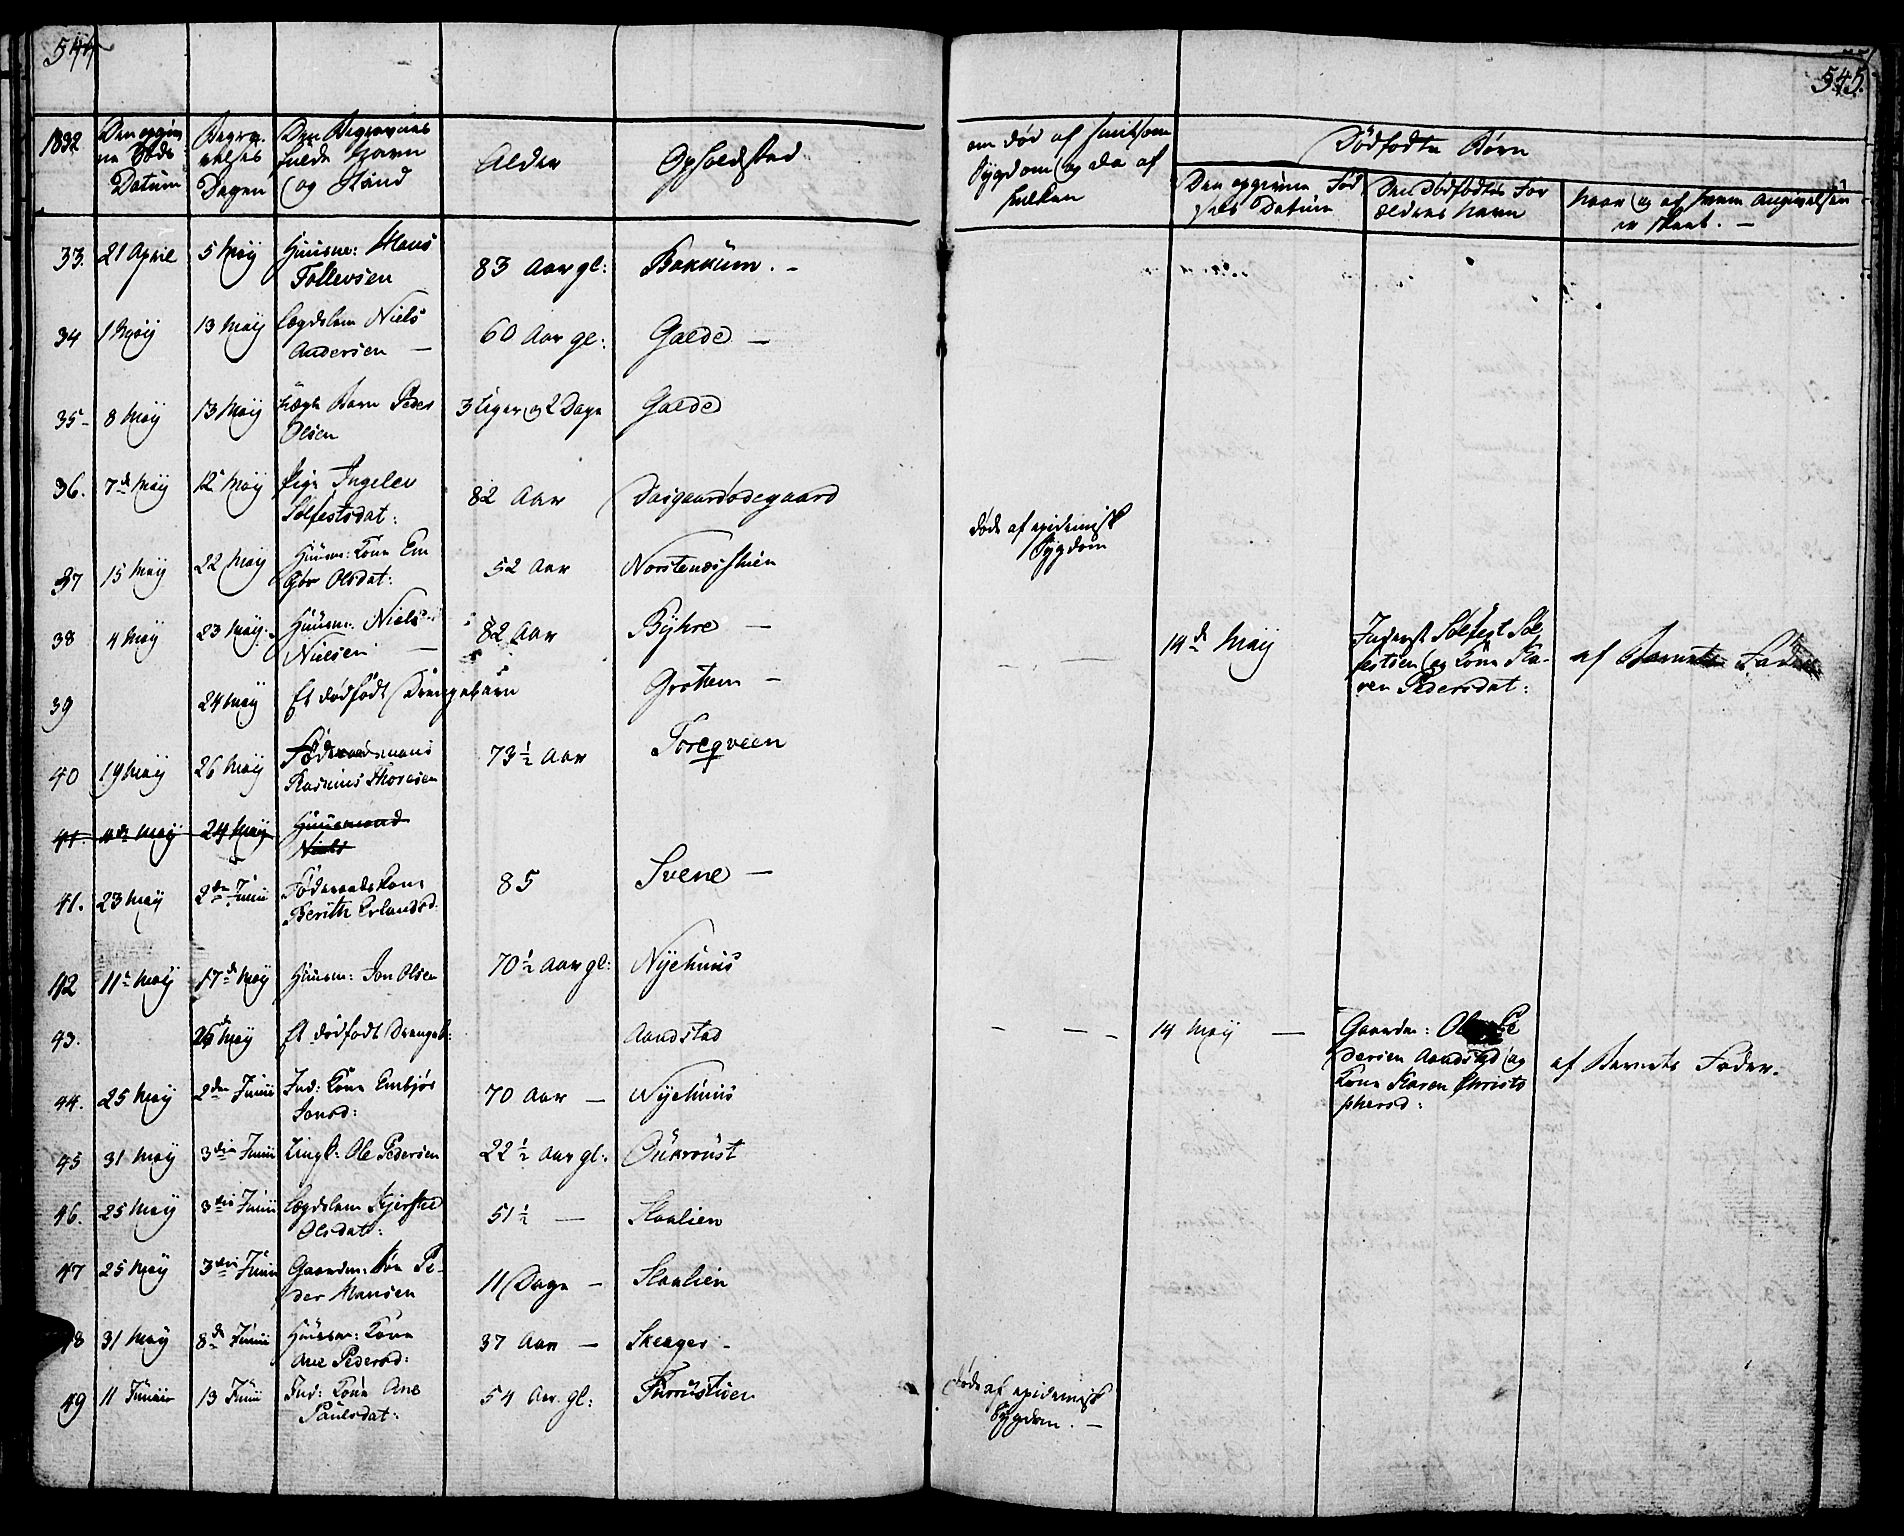 544
545.
1832
Den opgiv
ne Døds
Datum
Begra
velses
Dagen
Den Begravnes
fulde Navn
og Stand
Alder
Opholdsted
om død af smitsom
Sygdom og da af
hvilken
Dødfødte Børn
Den opgivne Fød
sels Datum
Den Dødfødtes For
ældres Navn
Naar og af hvem Angivelsen
er skeet. -
33. 21 April 5 May Huusm: Hans
Tollevsen 83 Aar gl: Bakkum. -
34 1 May 13 May Lægdslem Niels
Andersen - 60 Aar gl: Galde -
35 8 May 13 May Ægte Barn Peder
Olsen 3 Uger og 2 Dage Galde
36. 7d May 12 May Pige Ingeler
Solfestsdat: 82 Aar Dasgaardødegaard
37 15 May 22 May Huusm: Kone Em
Olsdat: 52 Aar
døde af epidemisk
Sygdom
38 4 May 23 May Huusm: Niels
Nielsen - 82 Aar Byhre -
39 24 May Et dødfødt Drengebarn Grothem -
14d May
Inderst Solfest Sol
festsen og Kone Ka-
ren Pedersdat:
af Barnets Fader
40 19 May 26 May Føderaadsmand
Rasmus Thoresen 73½ Aar Toreqveen
41. 4de May 24 May Huusmand
Niels
41. 23 May 2den Junii Føderaadskone
Berith Erlandsd. 85 Svene -
42 11 May 17d May Huusm: Jon Olsen 70½ Aar gl: Nyehuus
43. 26d May Et dødfødt Drengeb: Aandstad
14 May -
Gaardm: Ole Pe
dersen Aandstad og
Kone Karen Christo
phersd:
af Barnets Fader.
44. 25 May 2den Junii Ind: Kone Embjør
Jonsd: 70 Aar - Nyehuus
45 31 May 3die Junii Ungk: Ole Pedersen 22½ Aar gl:
46. 25 May 3die Junii Lægdslem Kjerstie
Olsdat: 51½ - Slaalien
47 25 May 3die Junii Gaardm: Søn Pe-
der Hansen 11 Dage - Slaalien
48 31 May 8d Junii Huusm: Kone
Ane Pedersd: 37 Aar - Skeager -
49 11 Junii 13 Junii Ind: Kone Ane
Paulsdat: 54 Aar gl:
døde af epidemisk
Sygdom. -